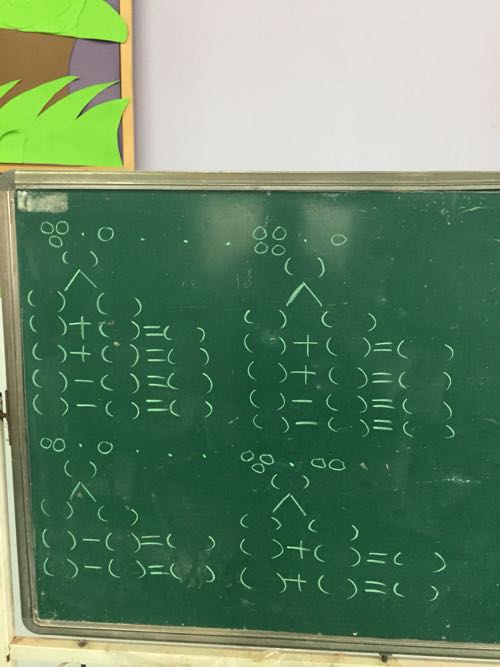 ○○ · ○
○
( )
∧
( ) ( )
( ) + ( ) = ( )
( ) + ( ) = ( )
( ) - ( ) = ( )
( ) - ( ) = ( )
○○ · ○
○○
( )
∧
( ) ( )
( ) + ( ) = ( )
( ) + ( ) = ( )
( ) - ( ) = ( )
( ) - ( ) = ( )
○○ · ○
( )
∧
( ) ( )
( ) - ( ) = ( )
( ) - ( ) = ( )
○○ · ○○
○
( )
∧
( ) ( )
( ) + ( ) = ( )
( ) + ( ) = ( )